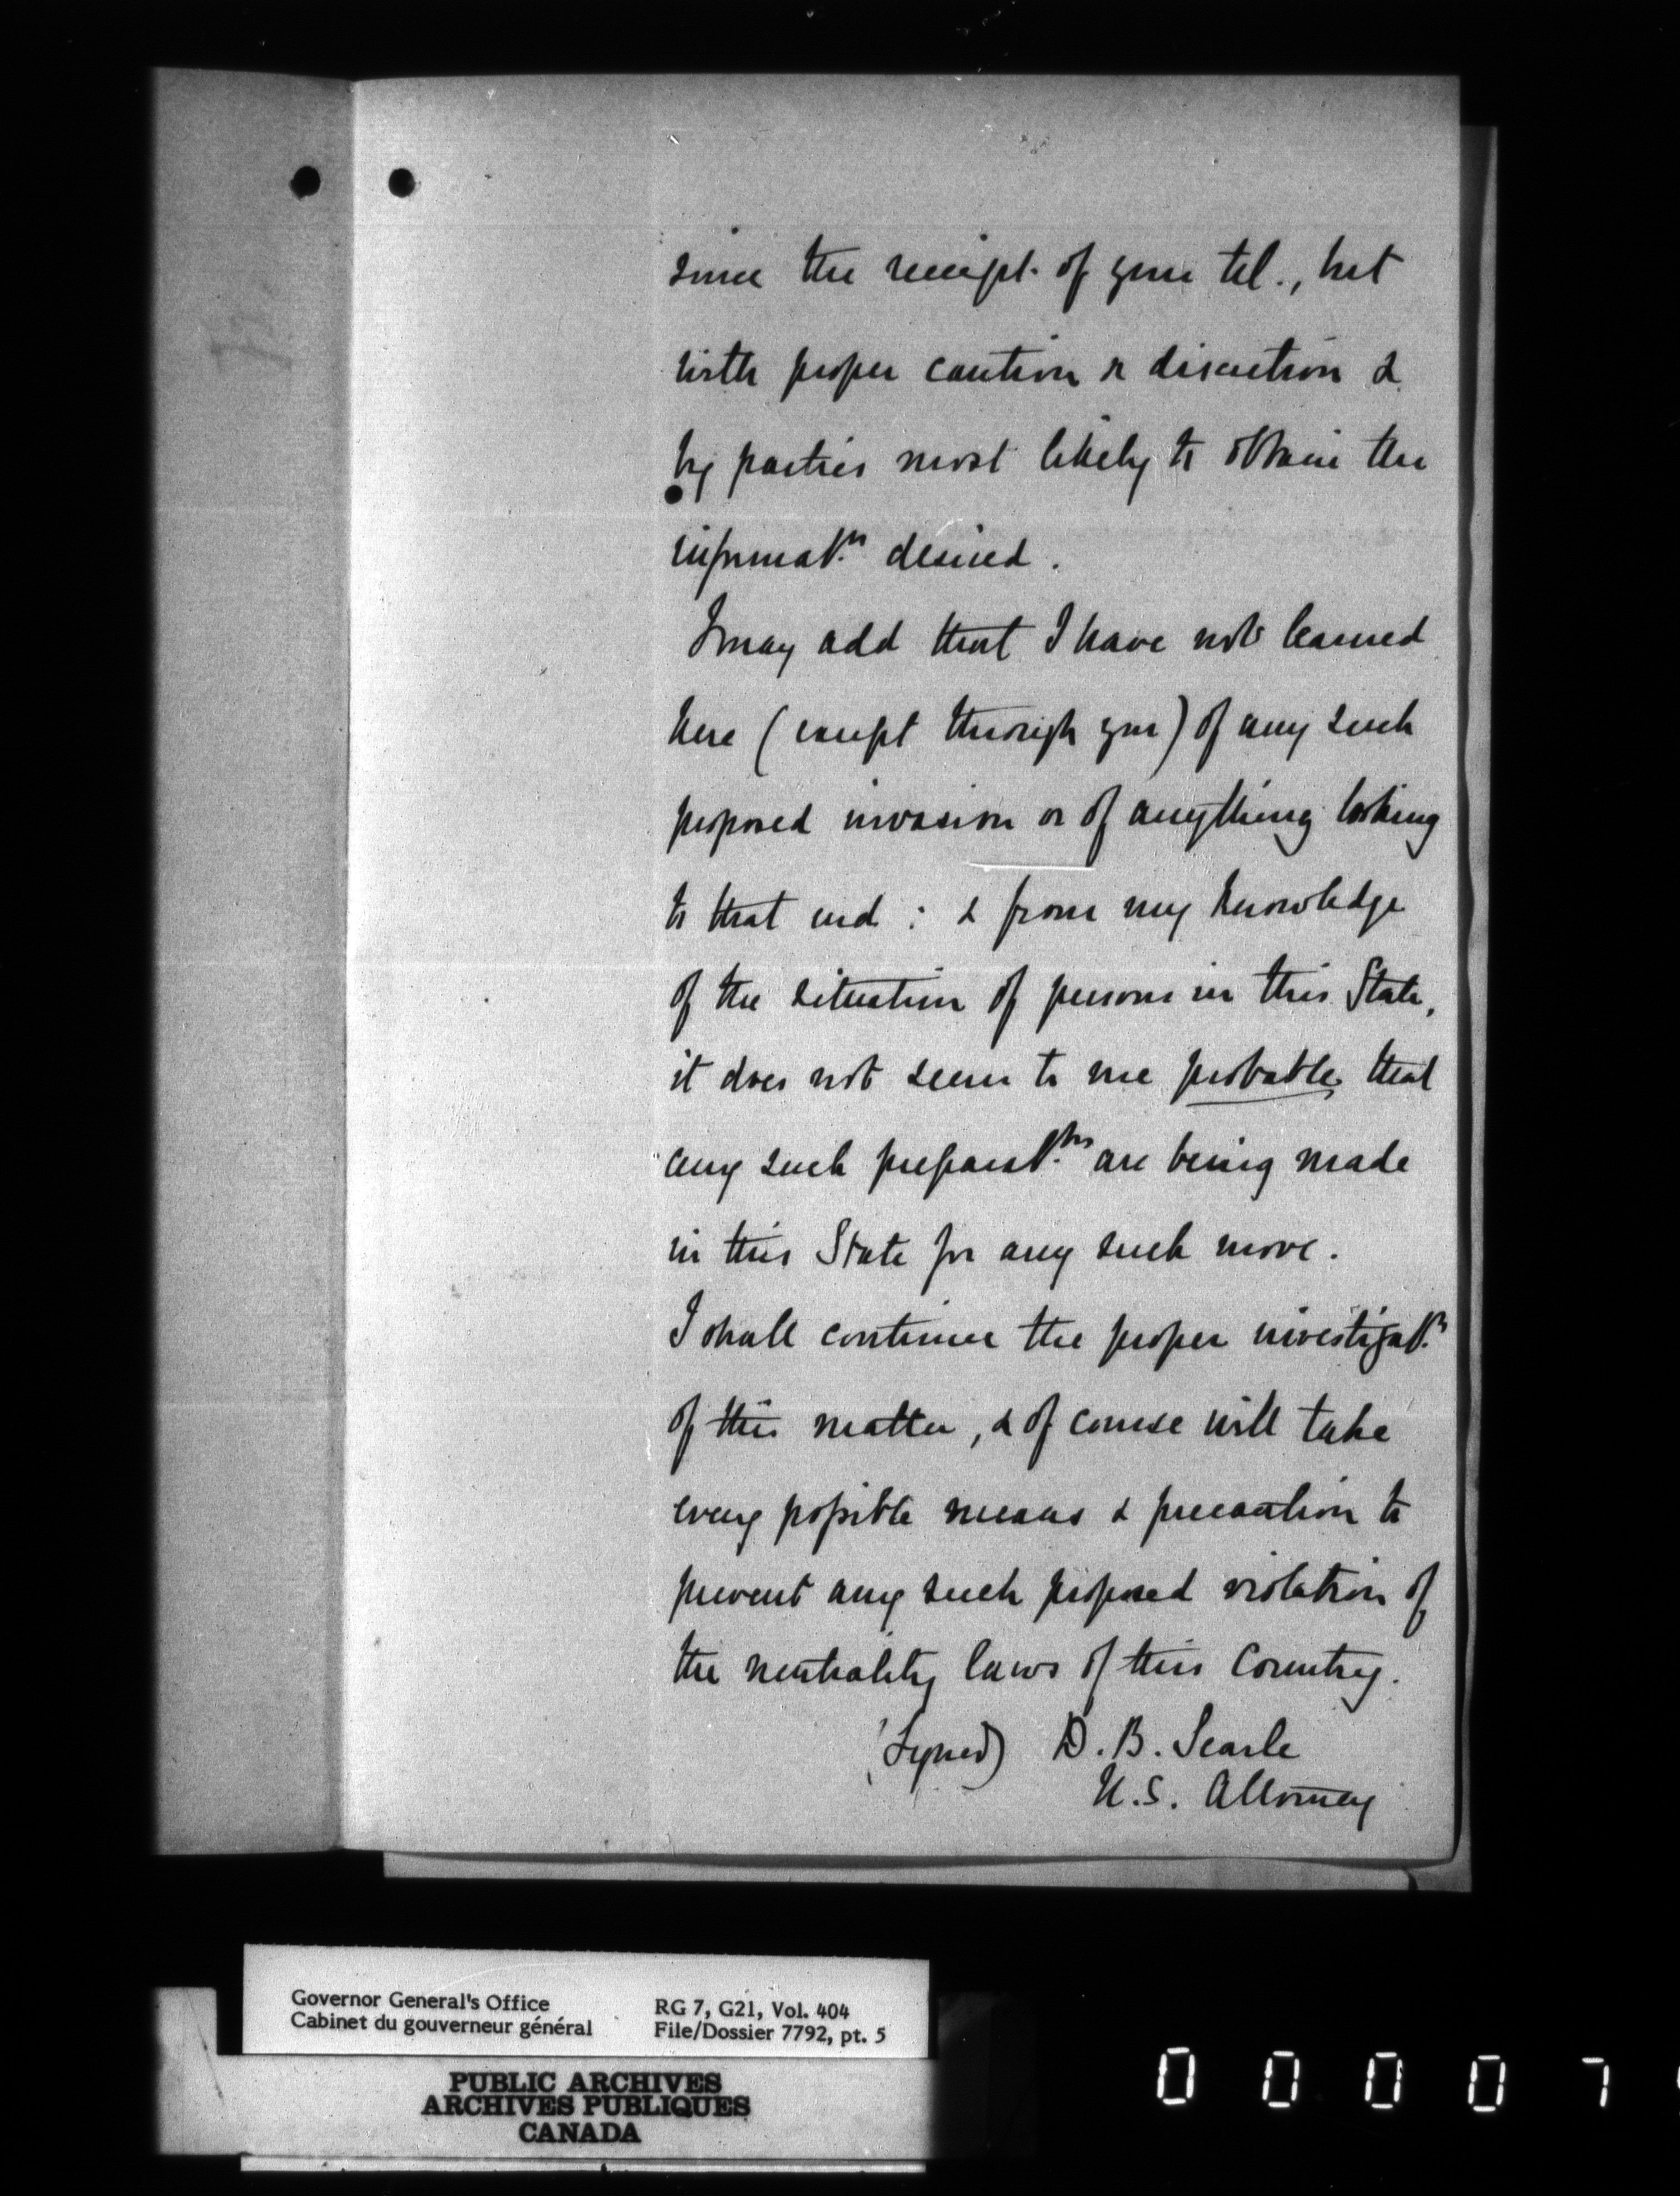 since the receipt. of your tel., but
with proper caution & discretion &
by parties most likely to obtain the
informat.n desired.
I may add that I have not learned
here (except through you) of any such
proposed invasion or of anything looking
to that end : & from my knowledge
of the situation of persons in this State,
it does not seem to me probable that
any such preparat.ns are being made
in this State for any such move.
I shall continue the proper investigat.n
of this matter, & of course will take
every possible means & precaution to
prevent any such proposed violation of
the neutrality laws of this Country.
(Signed) D. B. Searle
U.S. Attorney
Governor General's Office
Cabinet du gouverneur général
RG 7, G21, Vol. 404
File/Dossier 7792, pt. 5
PUBLIC ARCHIVES
ARCHIVES PUBLIQUES
CANADA
0 0 0 0 7